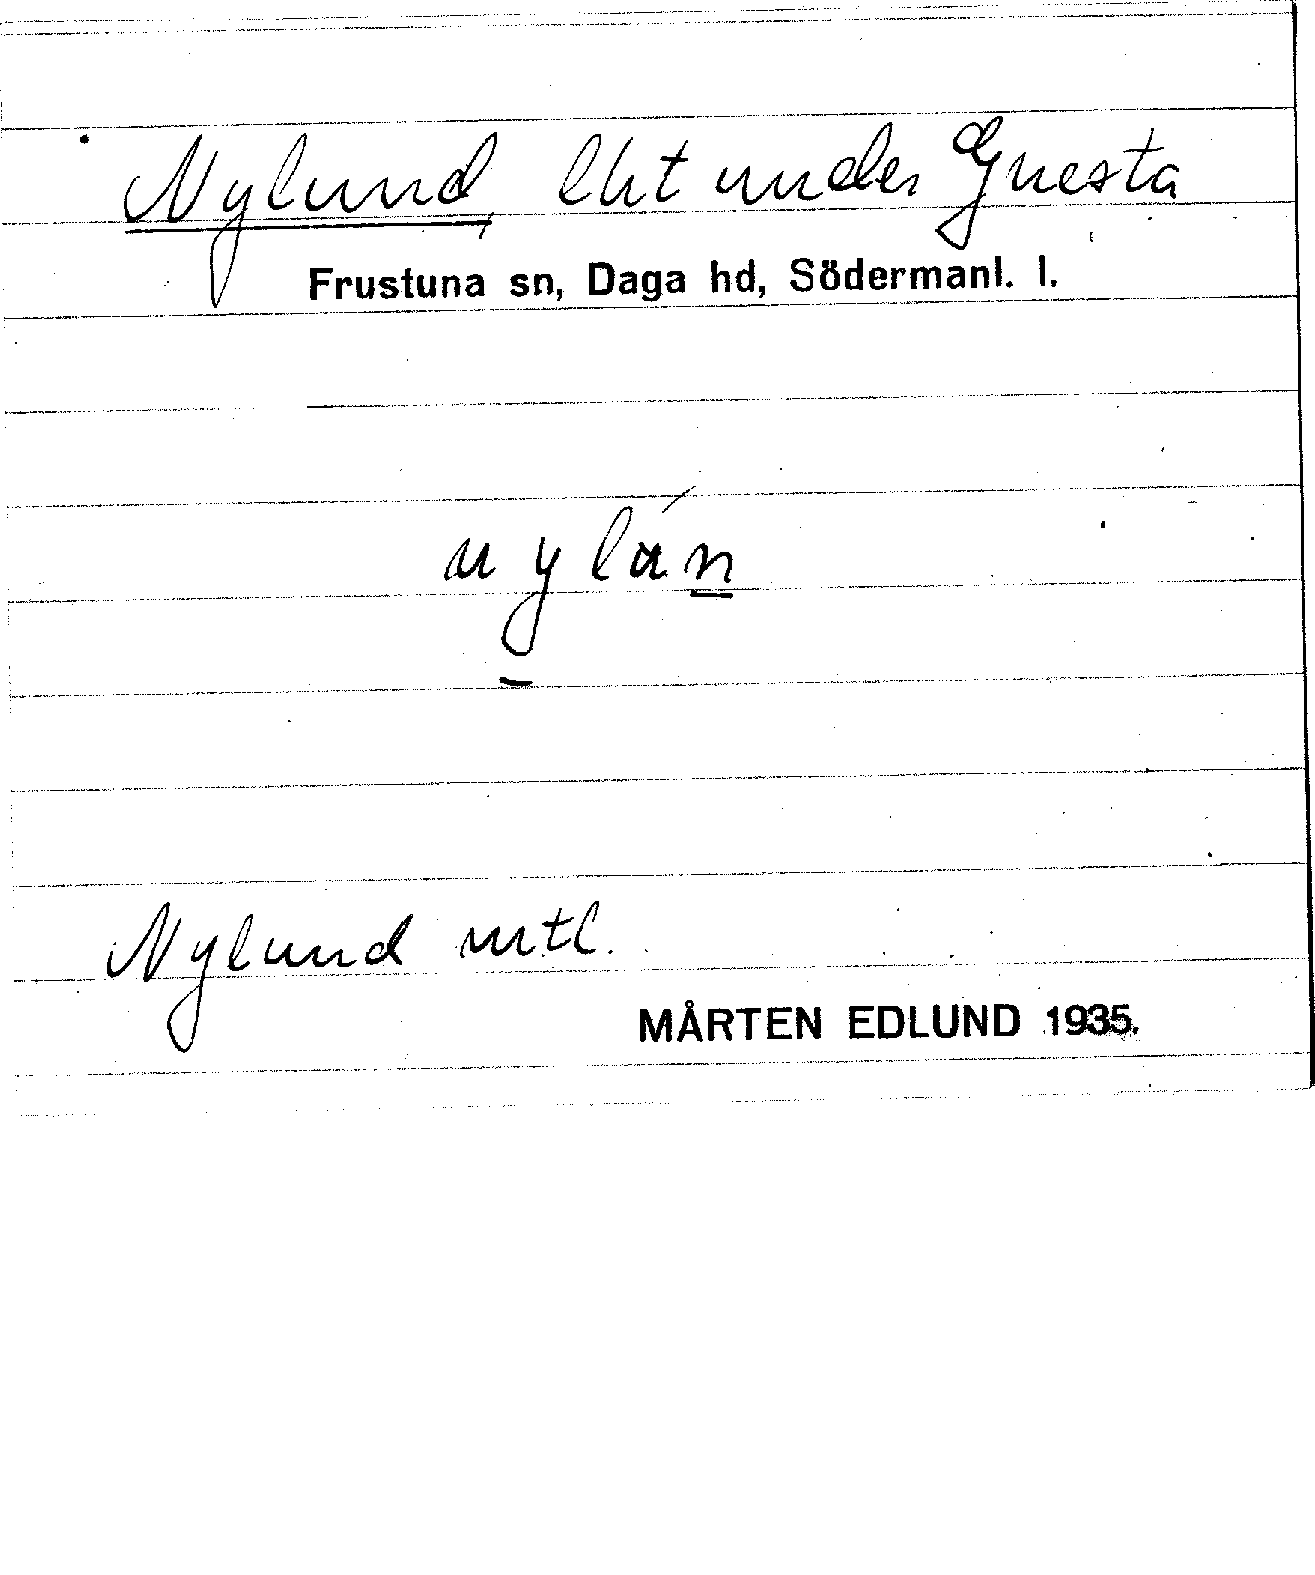 Nylund, lht under Gnesta
Frustuna sn, Daga hd, Södermanl. l.
nylán
Nylund mtl.
MÅRTEN EDLUND 1935.